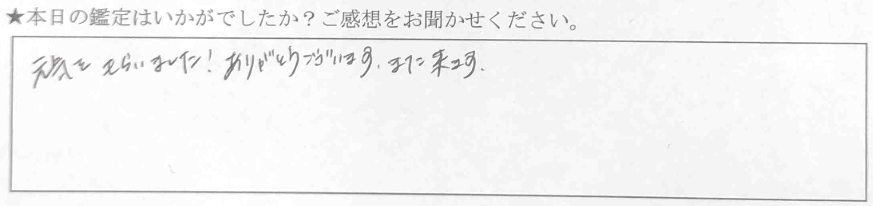 ★本日の鑑定はいかがでしたか？ご感想をお聞かせください。
元気をもらいました！ありがとうございます。また来ます。